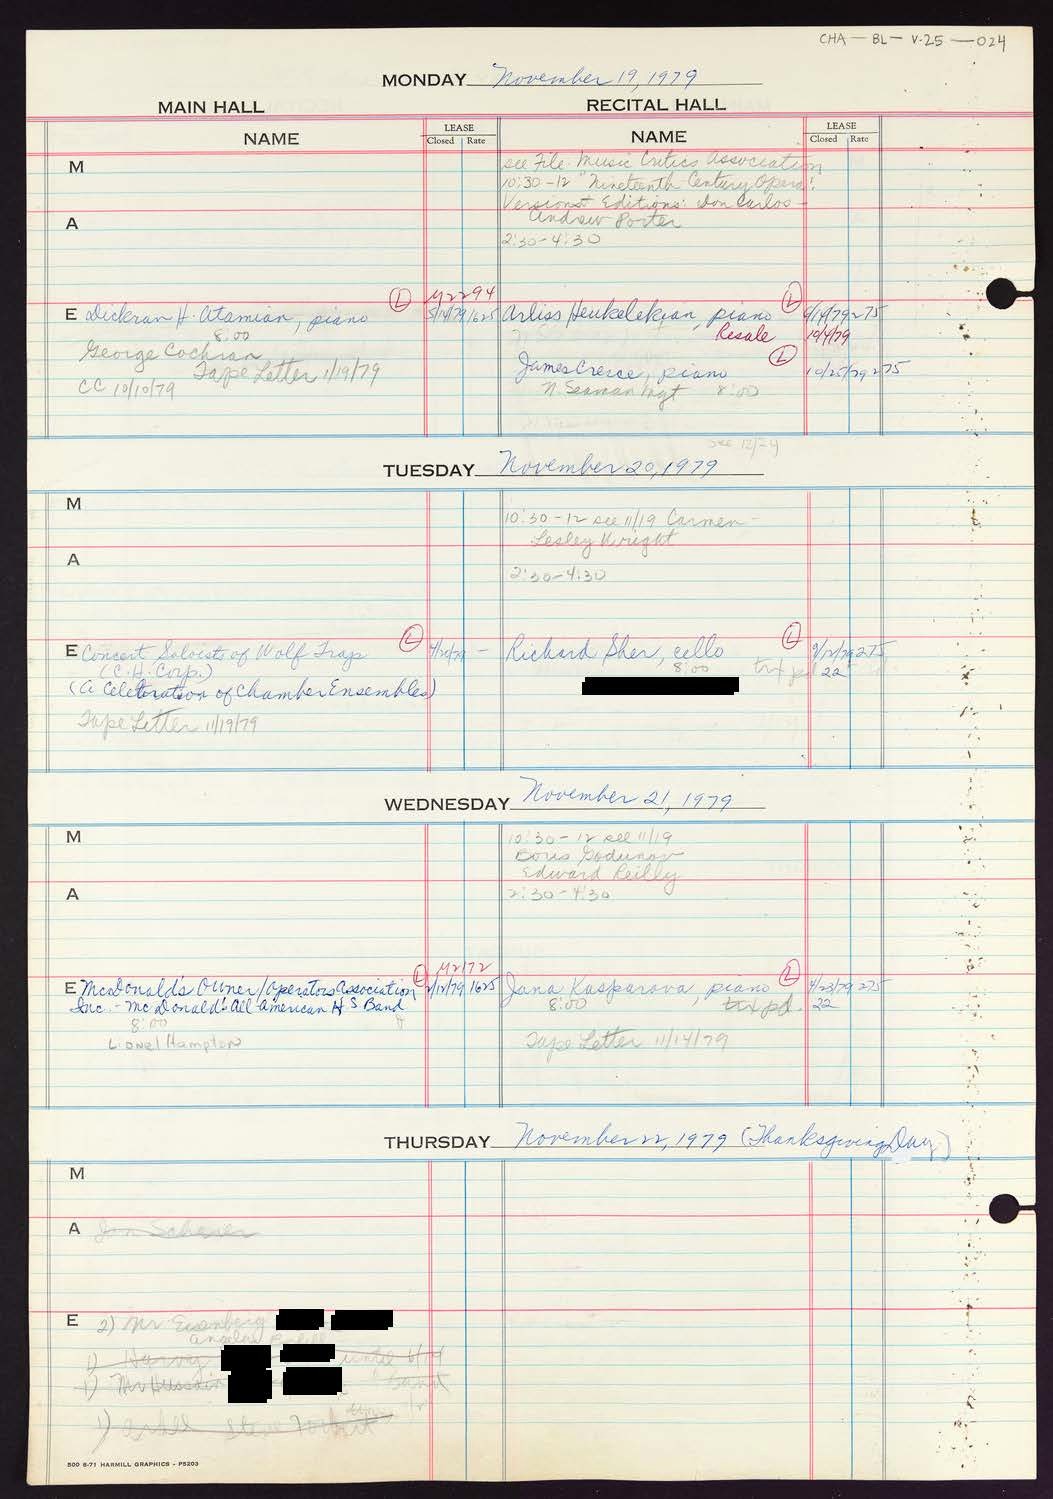 CHA - BL - V.25 - 024
MONDAY November 19, 1979
MAIN HALL
RECITAL HALL
NAME
LEASE
Closed Rate
NAME
LEASE
Closed Rate
M
see File Music Critics Association
10:30-12 "Nineteenth Century Opera:
Versions & Editions: Don Carlos -
Andrew Porter
A
2:30-4:30
L M2294
E Dickran H. Atamian, piano 5/14/79 1625
8:00
George Cochran
Tape Letter 11/19/79
CC 10/10/79
L
Arliss Heukelekian, piano 6/14/79 275
Resale 10/4/79
L
James Creese, piano 10/25/79 275
N. Seaman Mgt 8:00
see 12/24
TUESDAY November 20, 1979
M
10:30-12 see 11/19 Carmen -
Lesley Wright
A
2:30-4:30
L
E Concert Soloists of Wolf Trap -
(C.H. Corp.)
(A Celebration of Chamber Ensembles)
Tape Letter 11/19/79
L
Richard Sher, cello 275
8:00 txt pd 22
WEDNESDAY November 21, 1979
M
10:30-12 see 11/19
Boris Godunov
Edward Reilly
A
2:30-4:30
L M2172
E McDonald's Owner/Operators Association 2/12/79 1625
Inc. - McDonald's All American H.S. Band
8:00
Lionel Hampton
L
Jana Kasparova, piano 4/23/79 275
8:00 txt pd. 22
Tape Letter 11/14/79
THURSDAY November 22, 1979 (Thanksgiving Day)
M
A Jon Scherer
E 2) Mr Eisenberg
1) Harvey until 6/14
1) Mr Hussain Band
1) Steve
500 6-71 HARMILL GRAPHICS - P5203